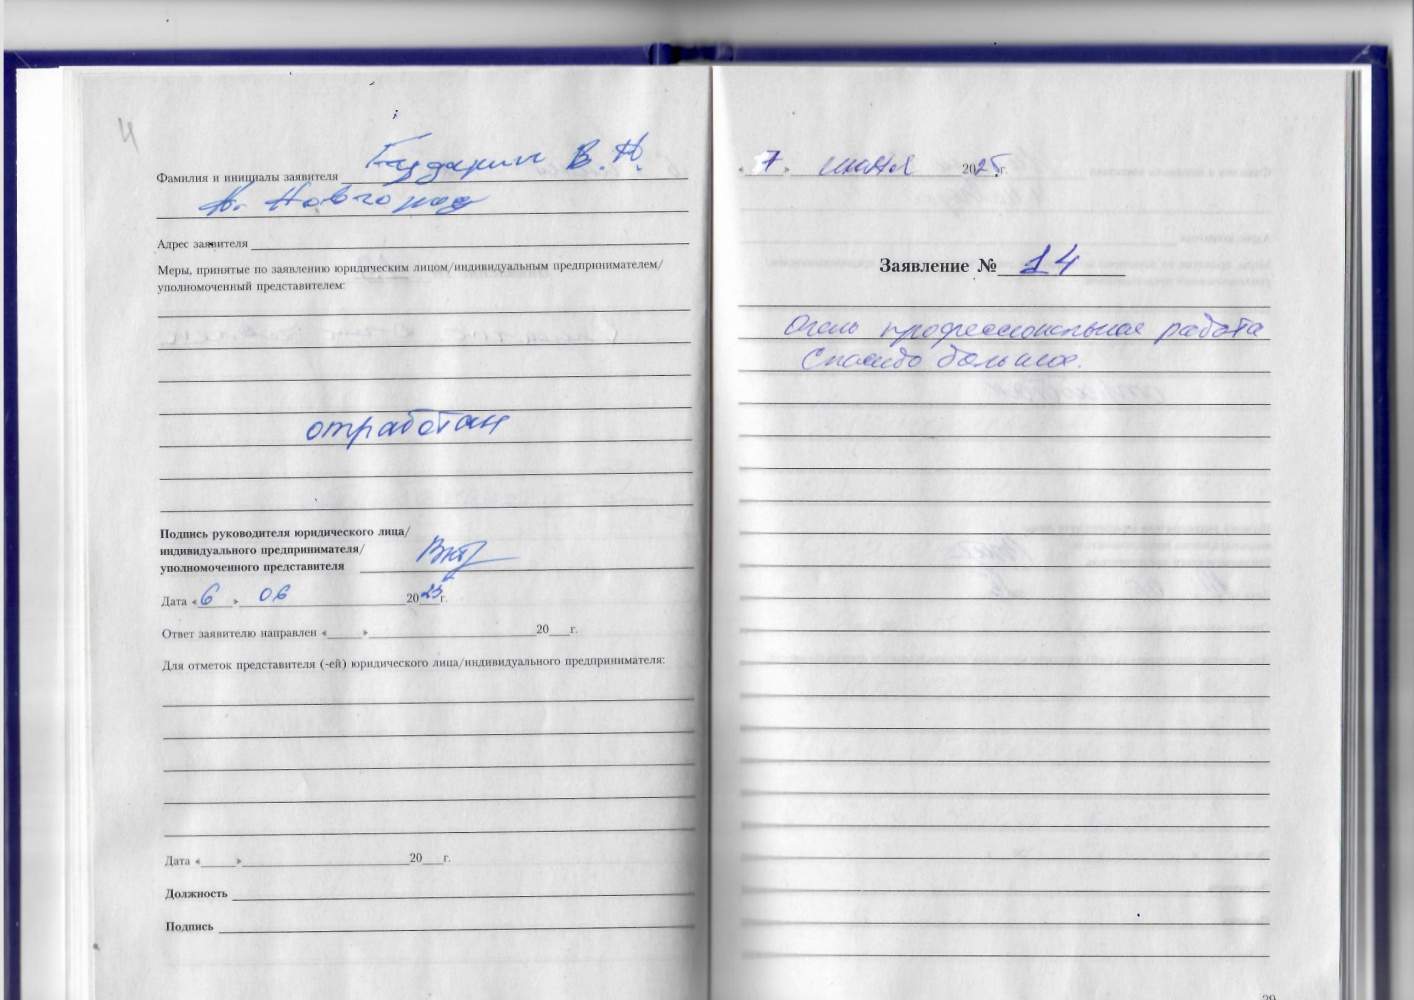 4
Фамилия и инициалы заявителя В. Н.
Н. Новгород
Адрес заявителя
Меры, принятые по заявлению юридическим лицом/индивидуальным предпринимателем/
уполномоченный представителем:
отработан
Подпись руководителя юридического лица/
индивидуального предпринимателя/
уполномоченного представителя
Дата «6» 06 2025 г.
Ответ заявителю направлен « » 20 г.
Для отметок представителя (-ей) юридического лица/индивидуального предпринимателя:
Дата « » 20 г.
Должность
Подпись
« 7 » июня 2025 г.
Заявление № 14
Очень профессиональная работа
Спасибо большое.
29